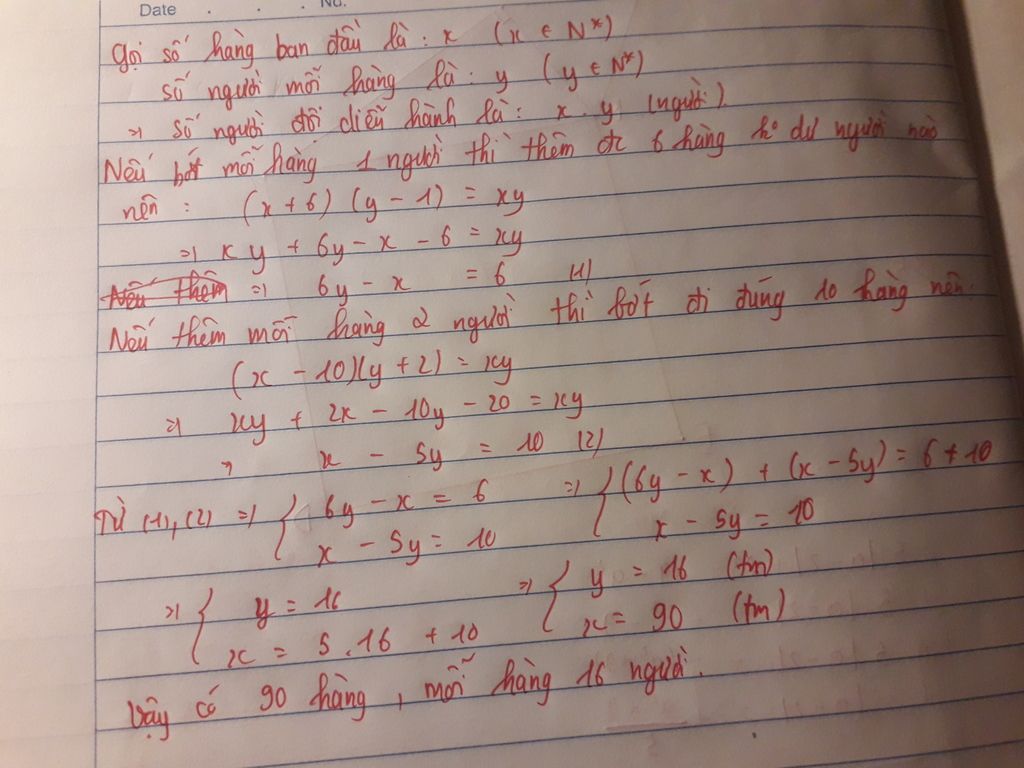 Date . . . No.
Gọi số hàng ban đầu là: x (x ∈ N*)
số người mỗi hàng là: y (y ∈ N*)
=> số người đội diễu hành là: x.y (người)
Nếu bớt mỗi hàng 1 người thì thêm đc 6 hàng ko dư người nào
nên: (x + 6) (y - 1) = xy
=> xy + 6y - x - 6 = xy
Nếu thêm => 6y - x = 6 (1)
Nếu thêm mỗi hàng 2 người thì bớt đi đúng 10 hàng nên
(x - 10)(y + 2) = xy
=> xy + 2x - 10y - 20 = xy
=> x - 5y = 10 (2)
Từ (1), (2) => { 6y - x = 6 => { (6y - x) + (x - 5y) = 6 + 10
x - 5y = 10 x - 5y = 10
=> { y = 16 => { y = 16 (tm)
x = 5.16 + 10 x = 90 (tm)
Vậy có 90 hàng, mỗi hàng 16 người.